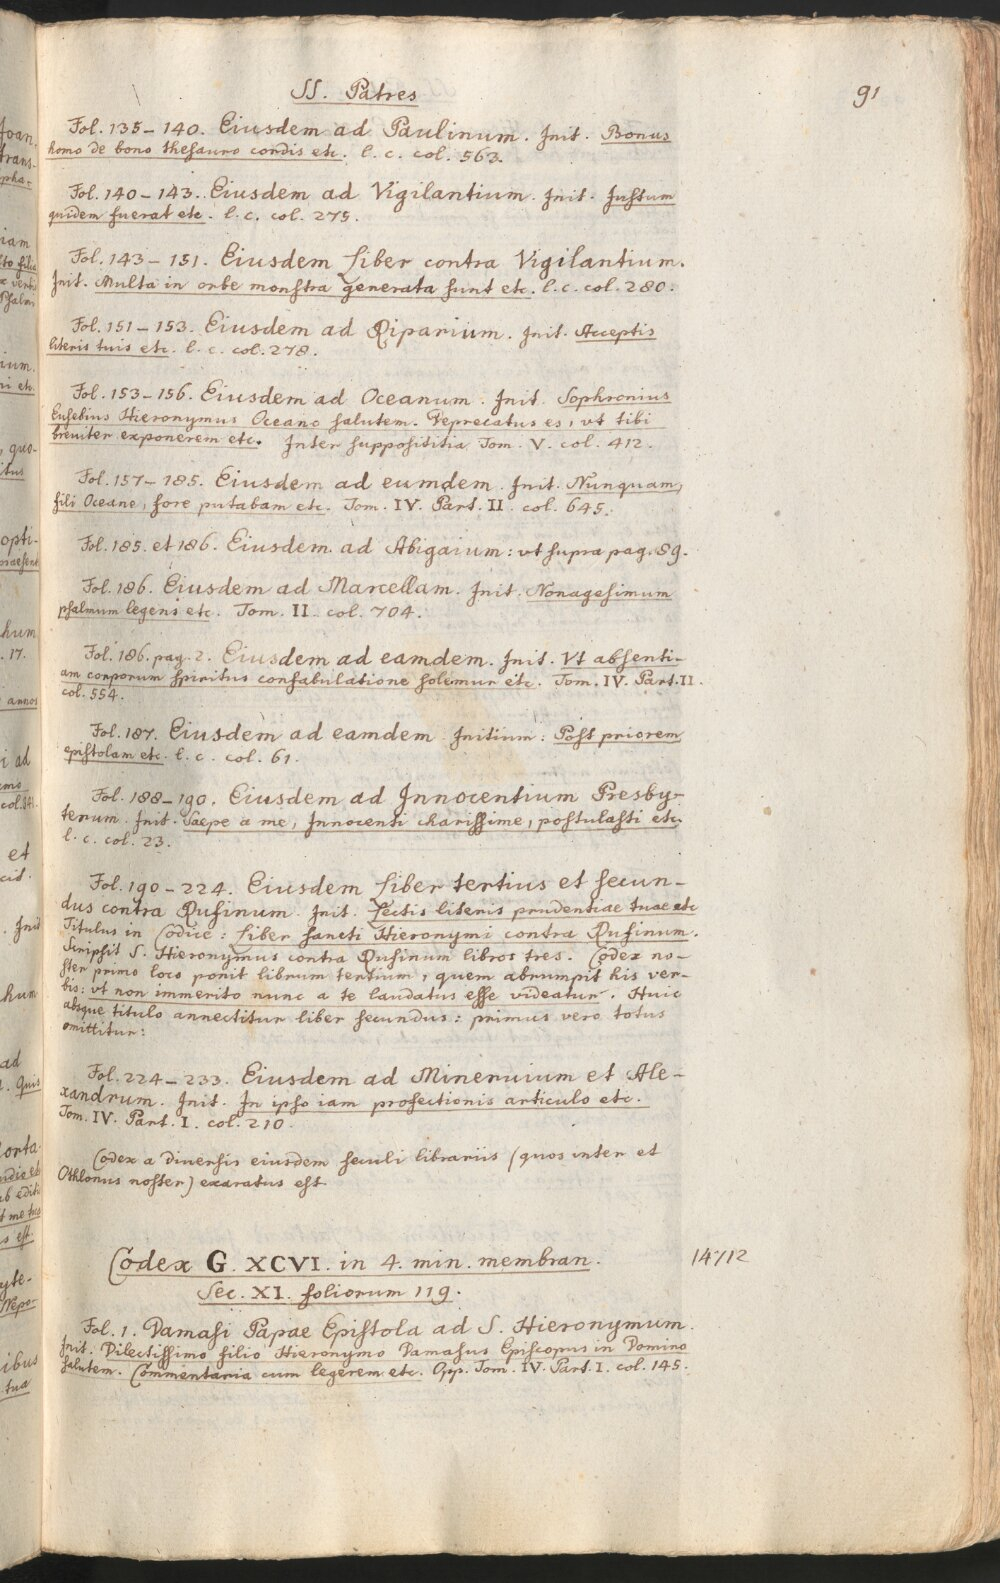 SS. Patres
91
Fol. 135–140. Eiusdem ad Paulinum. Init. Bonus
homo de bono thesauro cordis etc. l. c. col. 563.
Fol. 140–143. Eiusdem ad Vigilantium. Init. Justum
quidem fuerat etc. l. c. col. 275.
Fol. 143–151. Eiusdem Liber contra Vigilantium.
Init. Multa in orbe monstra generata sunt etc. l. c. col. 280.
Fol. 151–153. Eiusdem ad Riparium. Init. Acceptis
literis tuis etc. l. c. col. 278.
Fol. 153–156. Eiusdem ad Oceanum. Init. Sophronius
Eusebius Hieronymus Oceano salutem. Deprecatus es, vt tibi
breuiter exponerem etc. Inter supposititia Tom. V. col. 412.
Fol. 157–185. Eiusdem ad eumdem. Init. Nunquam,
fili Oceane, fore putabam etc. Tom. IV. Part. II. col. 645.
Fol. 185. et 186. Eiusdem ad Abigaium: vt supra pag. 89.
Fol. 186. Eiusdem ad Marcellam. Init. Nonagesimum
psalmum legens etc. Tom. II. col. 704.
Fol. 186. pag. 2. Eiusdem ad eamdem. Init. Vt absenti-
am corporum spiritus confabulatione solemur etc. Tom. IV. Part. II.
col. 554.
Fol. 187. Eiusdem ad eamdem. Initium: Post priorem
epistolam etc. l. c. col. 61.
Fol. 188–190. Eiusdem ad Innocentium Presby-
terum. Init. Saepe a me, Innocenti charissime, postulasti etc.
l. c. col. 23.
Fol. 190–224. Eiusdem Liber tertius et secun-
dus contra Rufinum. Init. Lectis literis prudentiae tuae etc
Titulus in Codice: Liber sancti Hieronymi contra Rufinum.
Scripsit S. Hieronymus contra Rufinum libros tres. Codex no-
ster primo loco ponit librum tertium, quem abrumpit his ver-
bis: vt non immerito nunc a te laudatus esse videatur. Huic
absque titulo annectitur liber secundus: primus vero totus
omittitur:
Fol. 224–233. Eiusdem ad Mineruium et Ale-
xandrum. Init. In ipso iam profectionis articulo etc.
Tom. IV. Part. I. col. 210.
Codex a diuersis eiusdem seculi librariis (quos inter et
Othlonus noster) exaratus est.
Codex G. XCVI. in 4. min. membran.
14712
Sec. XI. foliorum 119.
Fol. 1. Damasi Papae Epistola ad S. Hieronymum.
Init. Dilectissimo filio Hieronymo Damasus Episcopus in Domino
salutem. Commentaria cum legerem etc. Opp. Tom. IV. Part. I. col. 145.